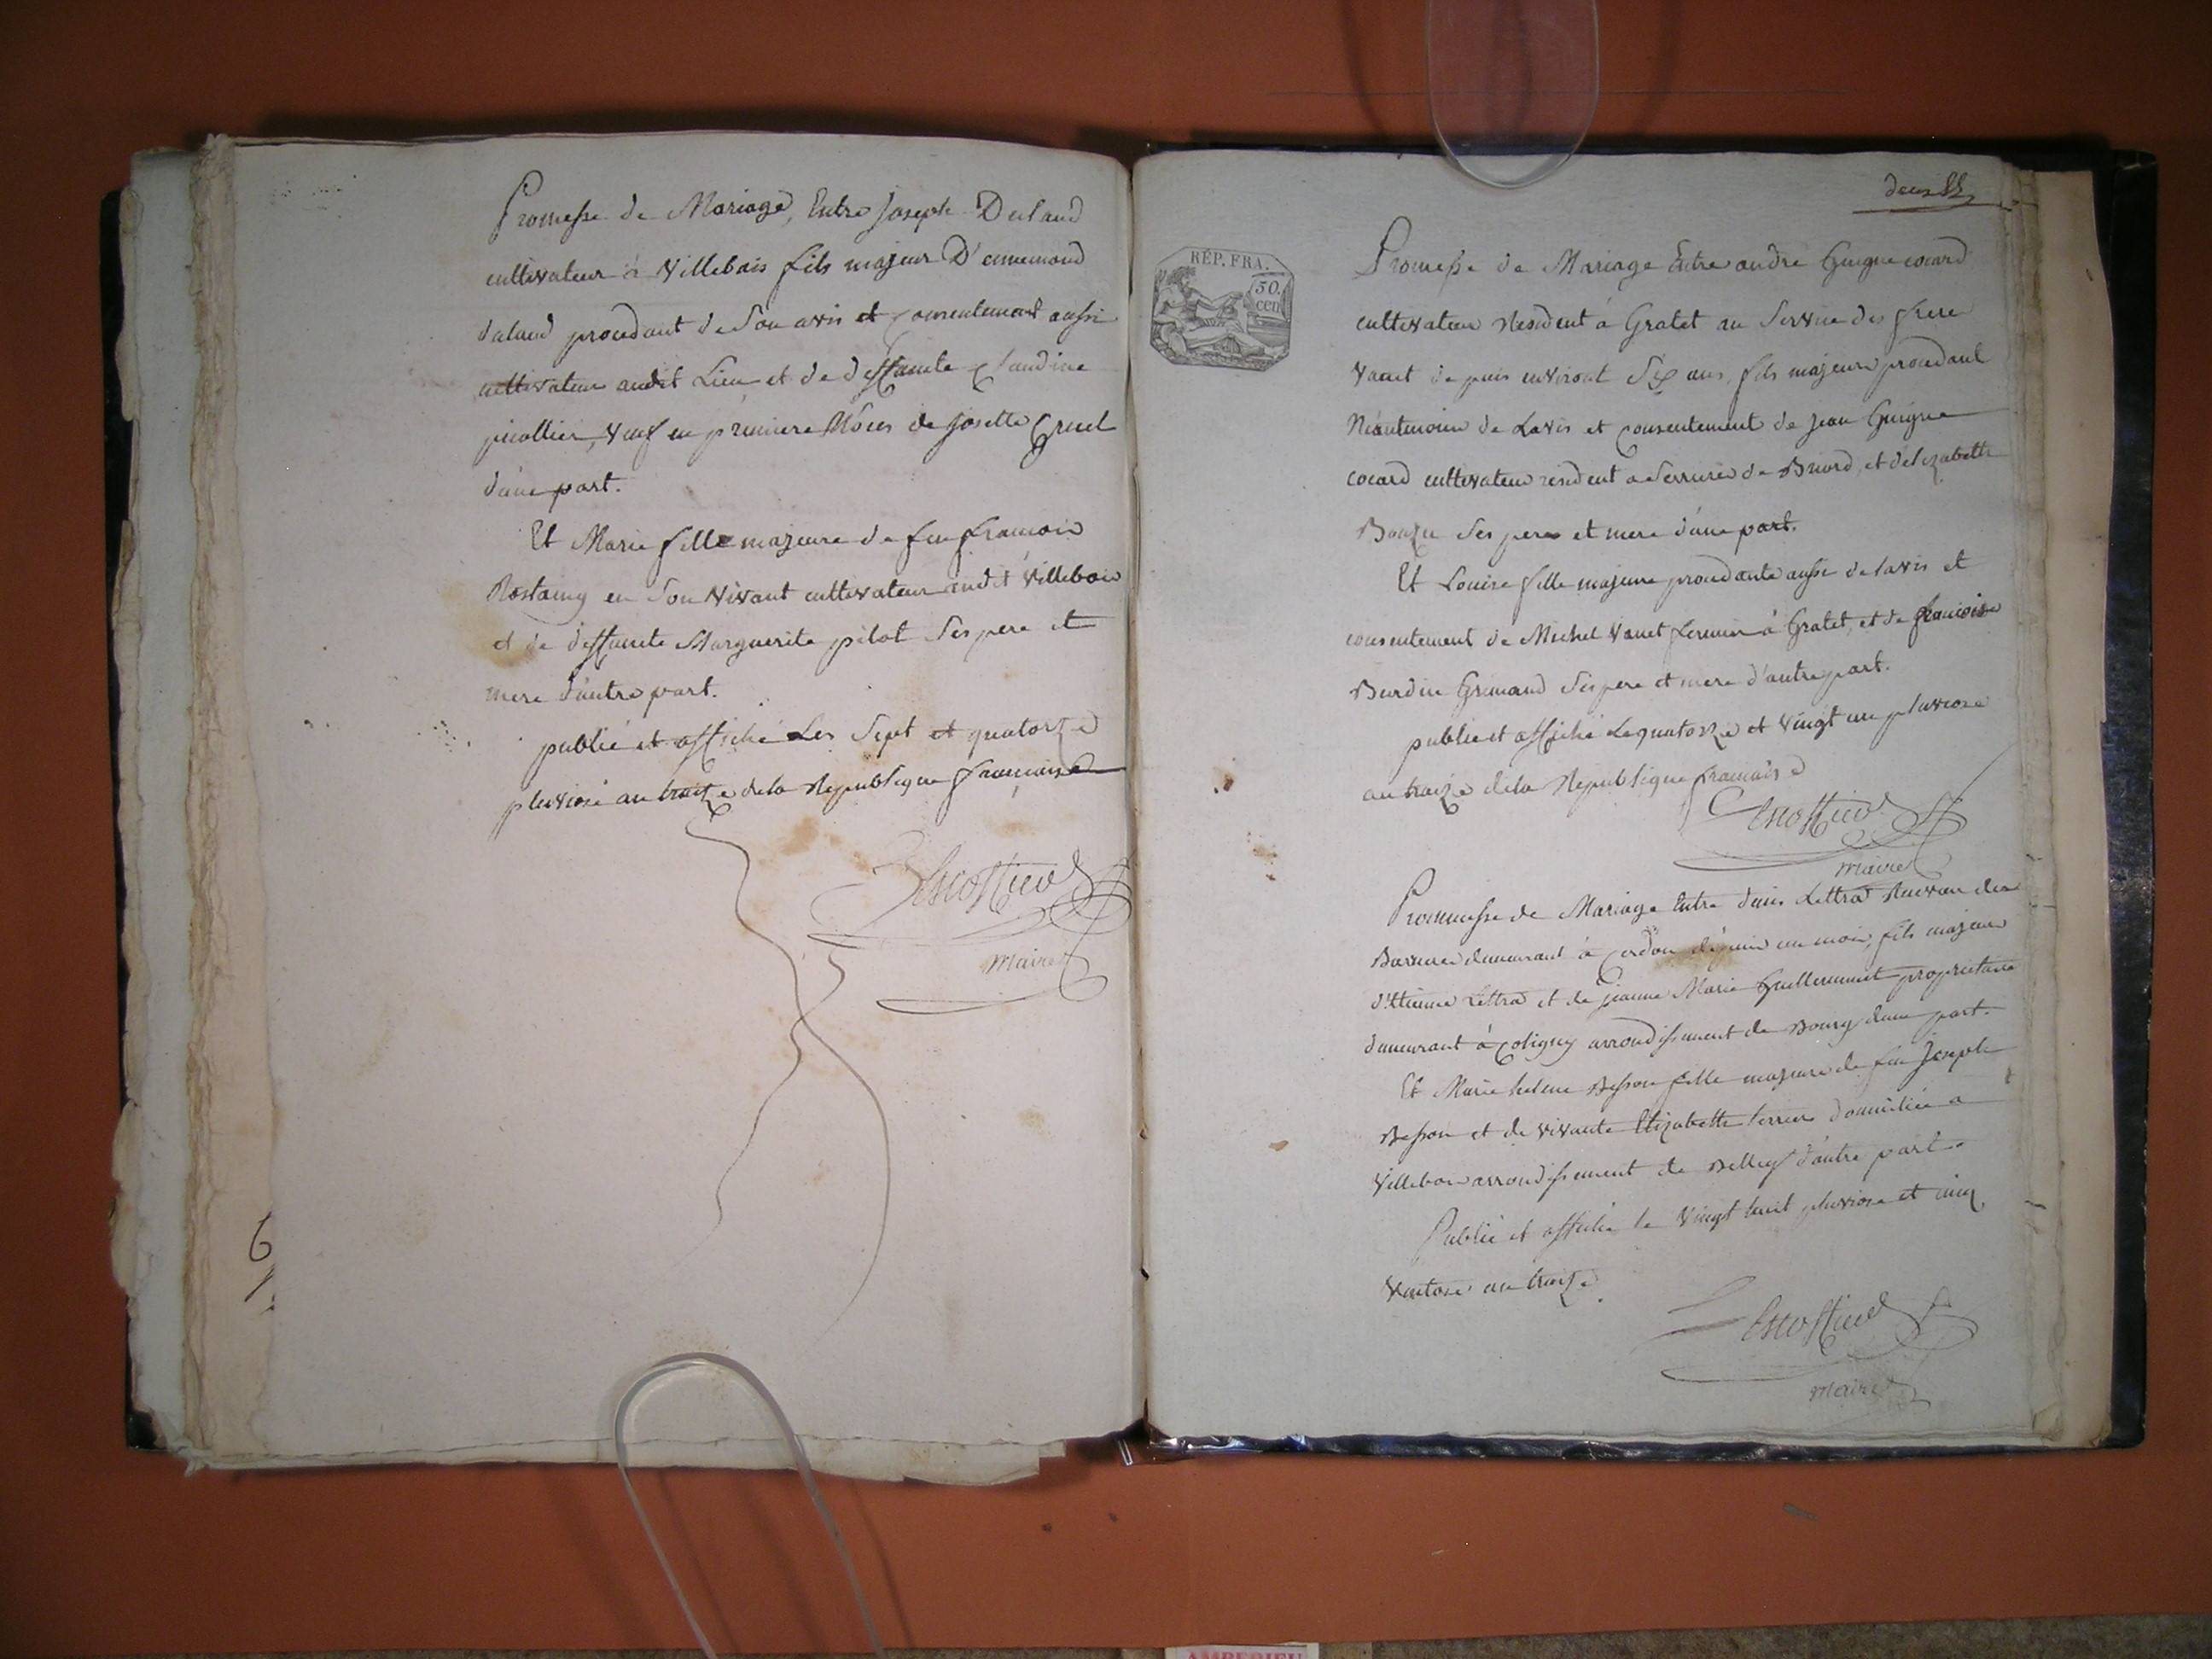 Promesse de Mariage, Entre Joseph Dulaud
cultivateur à Villebois fils majeur D'ennemond
dulaud procedant de Son avis et consentement aussi
cultivateur audit Lieu et de deffuncte Claudine
picollier, veuf en premiere Nôces de Josette Gruel
d'une part.
Et Marie fille majeure de feu francois
Rostaing en Son Vivant cultivateur audit Villebois
et de deffuncte Marguerite pilot Ses pere et
mere d'autre part.
publié et affiché Les Sept et quatorze
pluviose an traize de la Republique francaise
Maire
6
deux
RÉP. FRA.
50.
cen
Promesse de Mariage Entre andré Guigue cocard
cultivateur Resident à Gratet au Service des frere
Vanet depuis environt Six ans, fils majeur procedant
Néantmoins de Lavis et consentement de Jean Guigue
cocard cultivateur resident a Serrieres de Briord, et d'elizabeth
Ses pere et mere d'une part.
Et Louise fille majeure procedante aussi de lavis et
consentement de Michel Vanet fermier à Gratet, et de francoise
Burdin Grimaud Ses pere et mere d'autre part.
publié et affiché Le quatorze et Vingt un pluviose
an traize de la Republique francaise
maire
Prommesse de Mariage Entre Lettra
demeurant à Cordon depuis un mois, fils majeur
d'Etienne Lettra et de jeanne Marie Guillerminet proprietaire
demeurant à Coligny arrondissement de Bourg d'une part.
Et Marie helene Besson fille majeure de feu Joseph
Besson et de vivante Elizabeth domiciliée a
Villebois arrondissement de Belley d'autre part.
Publié et affiché le Vingt huit pluviose et cinq
Ventose an traize.
Maire
AMBERIEU